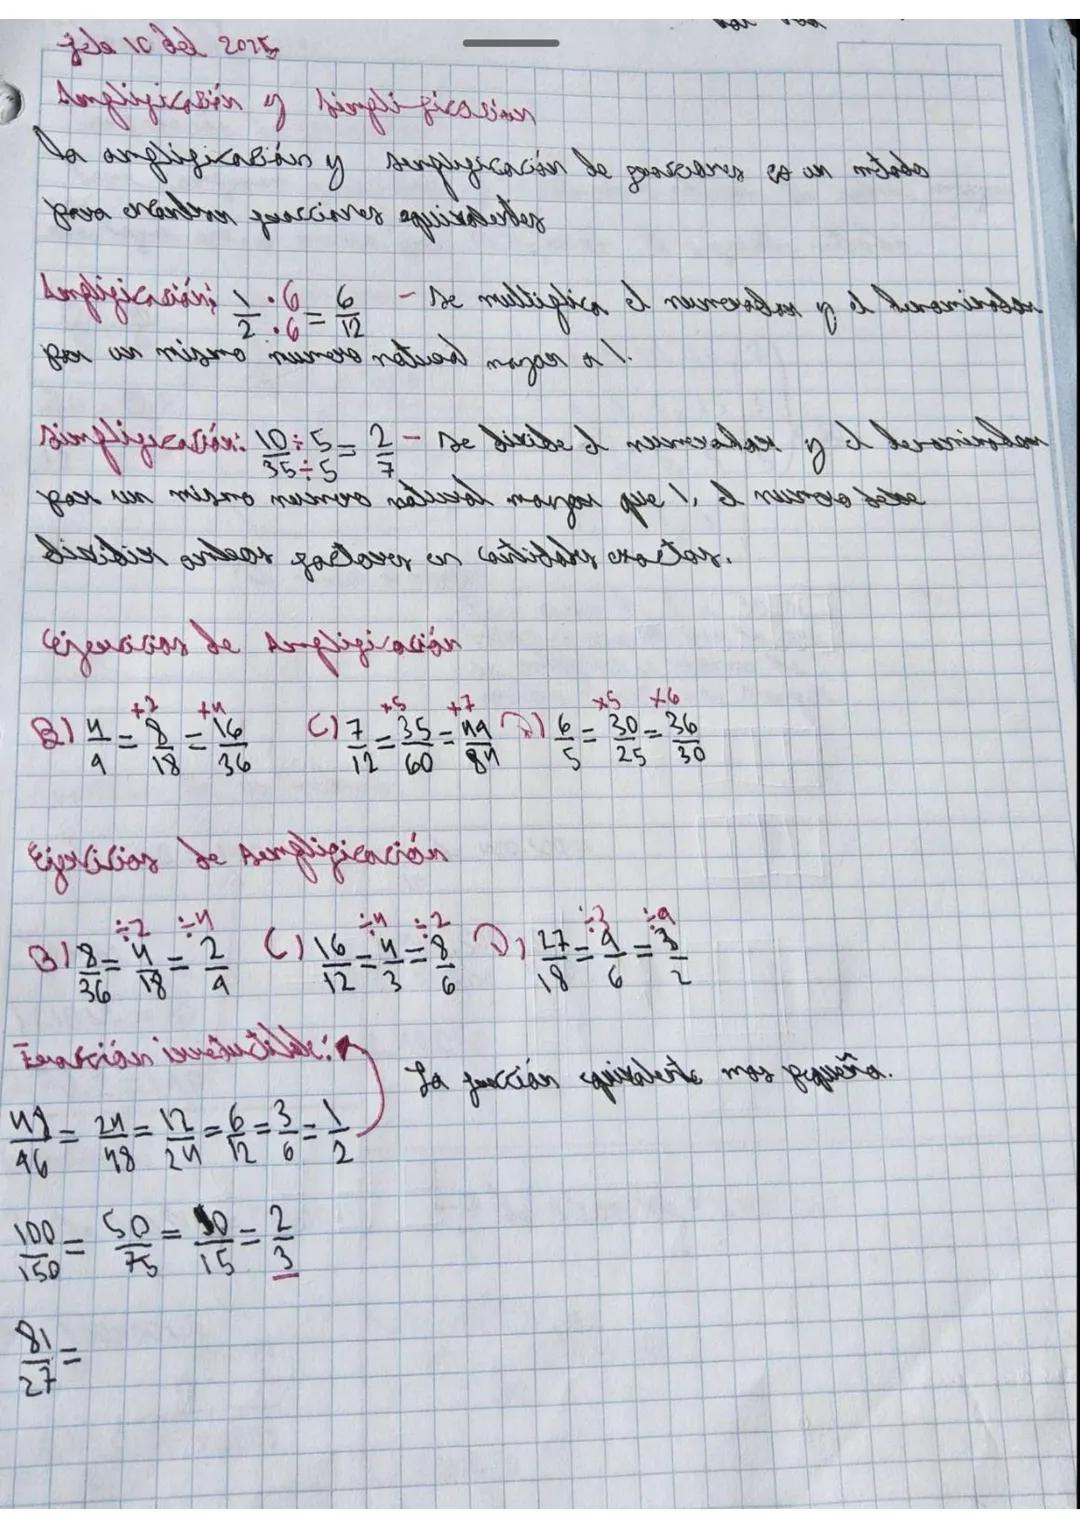 10 del 2025
Amplificación y Simplificación
La amplificación y simplificación de fracciones es un método
para encontrar fracciones equivalentes
Amplificación: 1/2 ·6/·6 = 6/12 - Se multiplica el numerador y el denominador
por un mismo número natural mayor a 1.
Simplificación: 10÷5/35÷5 = 2/7 - Se divide el numerador y el denominador
por un mismo número natural mayor que 1, el número debe
dividir ambos factores en cantidades exactas.
Ejercicios de Amplificación
×2 ×4 ×5 ×7 ×5 ×6
B) 4/9 = 8/18 = 16/36 C) 7/12 = 35/60 = 49/84 D) 6/5 = 30/25 = 36/30
Ejercicios de simplificación
÷2 ÷4 ÷4 ÷2 ÷3 ÷9
B) 8/36 = 4/18 = 2/9 C) 16/12 = 4/3 = 8/6 D) 27/18 = 9/6 = 3/2
Fracción irreductible:
La fracción equivalente mas pequeña.
48/96 = 24/48 = 12/24 = 6/12 = 3/6 = 1/2
100/150 = 50/75 = 10/15 = 2/3
81/27 =